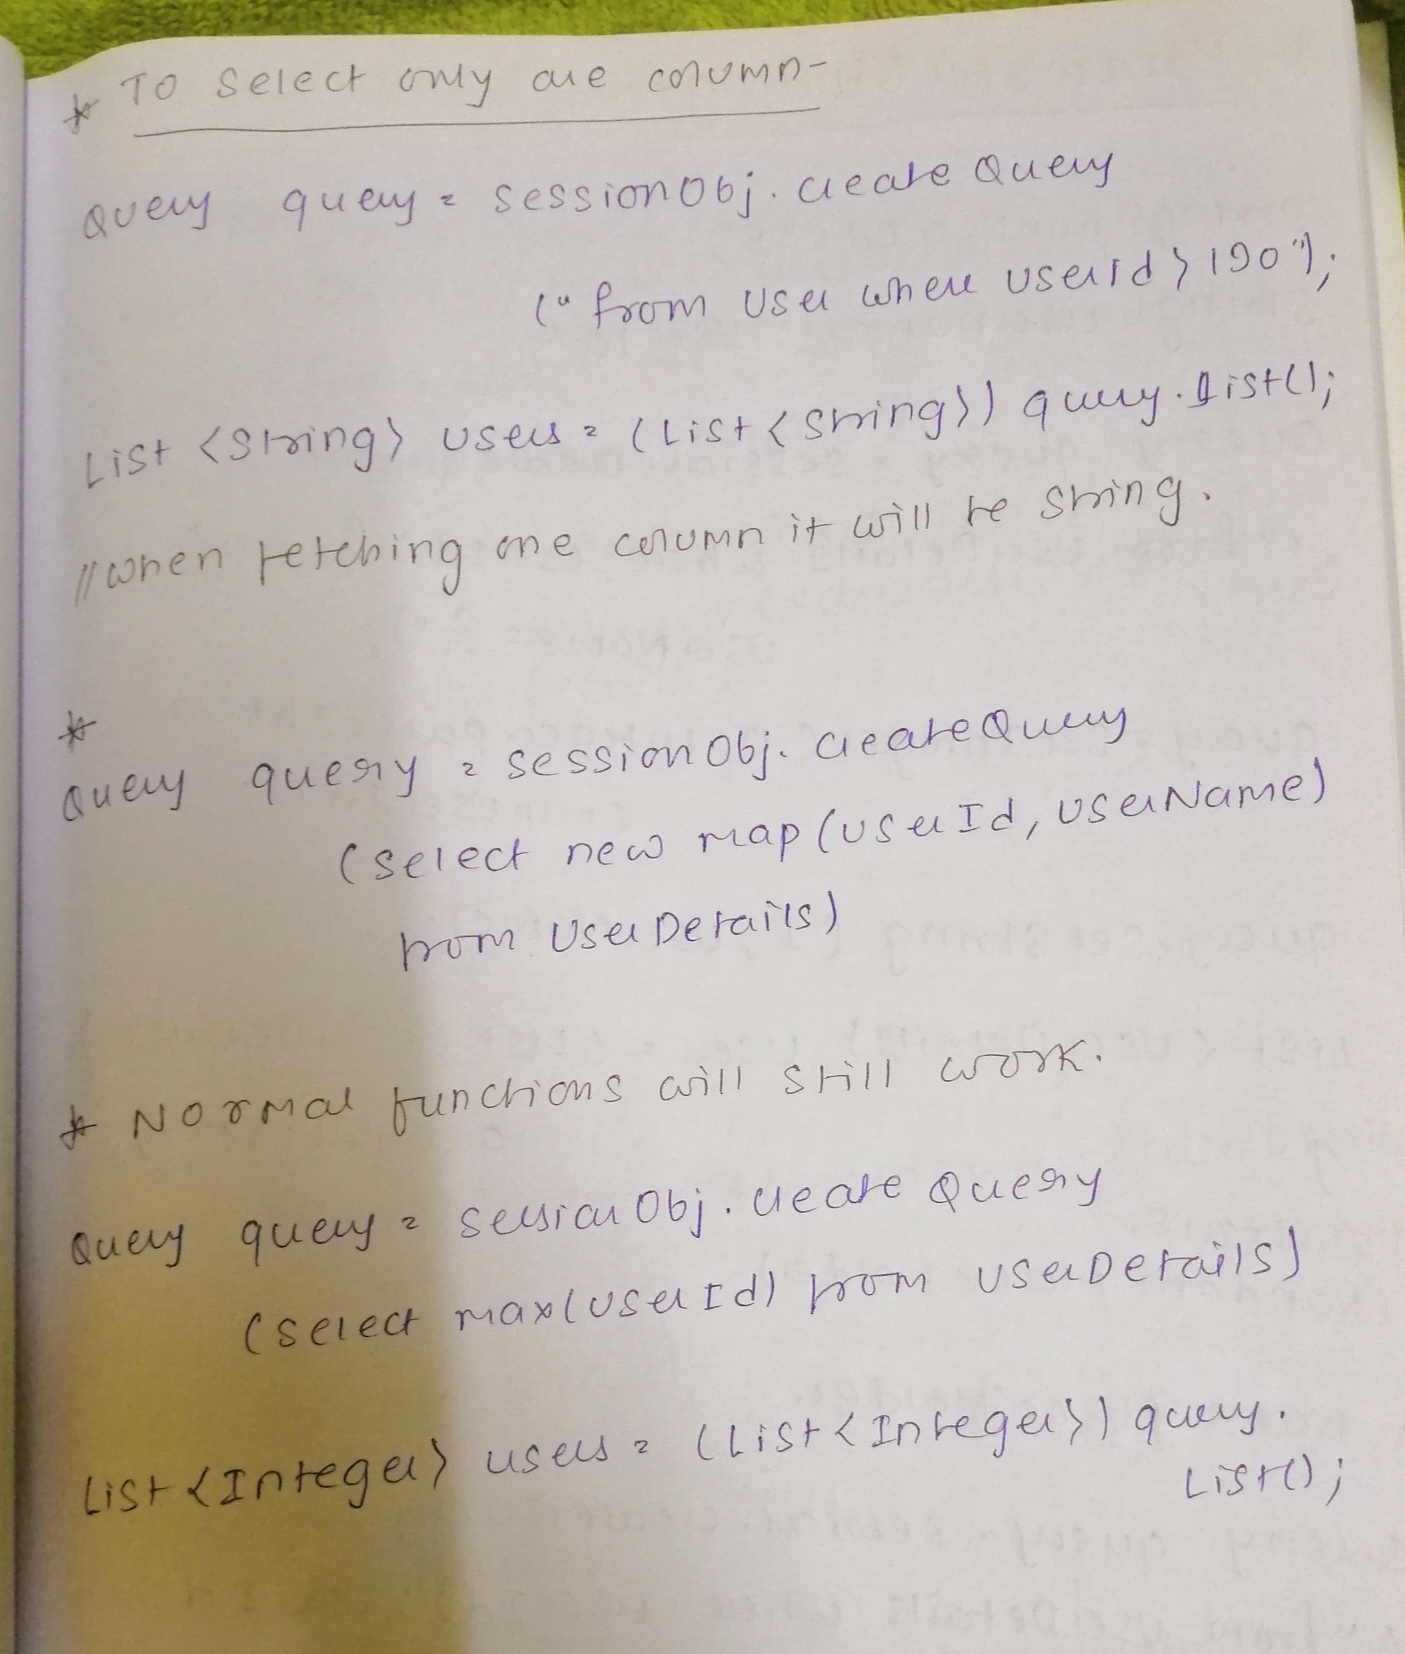 * To select only one column-
Query query = sessionObj.createQuery
("from User where userId > 100");
List <String> users = (List <String>) query.list();
// when fetching one column it will be string.
*
Query query = sessionObj.createQuery
(select new map(userId, userName)
from UserDetails)
* Normal functions will still work.
Query query = sessionObj.createQuery
(select max(userId) from userDetails)
List <Integer> users = (List <Integer>) query.
List();